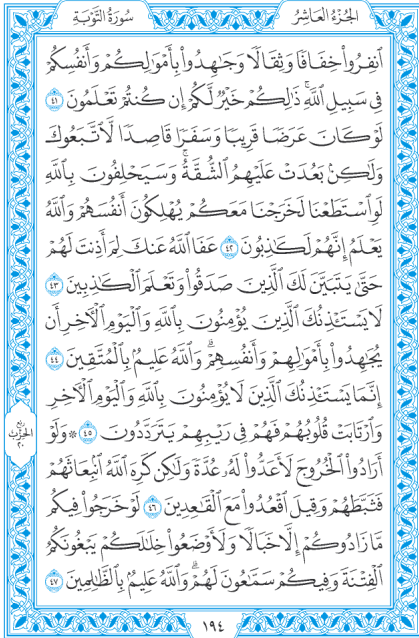 الجُزْءُ العَاشِرُ
سُورَةُ التَّوْبَةِ
ٱنفِرُوا۟ خِفَافًا وَثِقَالًا وَجَٰهِدُوا۟ بِأَمْوَٰلِكُمْ وَأَنفُسِكُمْ
فِى سَبِيلِ ٱللَّهِ ۚ ذَٰلِكُمْ خَيْرٌ لَّكُمْ إِن كُنتُمْ تَعْلَمُونَ ٤١
لَوْ كَانَ عَرَضًا قَرِيبًا وَسَفَرًا قَاصِدًا لَّٱتَّبَعُوكَ
وَلَٰكِنۢ بَعُدَتْ عَلَيْهِمُ ٱلشُّقَّةُ ۚ وَسَيَحْلِفُونَ بِٱللَّهِ
لَوِ ٱسْتَطَعْنَا لَخَرَجْنَا مَعَكُمْ يُهْلِكُونَ أَنفُسَهُمْ وَٱللَّهُ
يَعْلَمُ إِنَّهُمْ لَكَٰذِبُونَ ٤٢ عَفَا ٱللَّهُ عَنكَ لِمَ أَذِنتَ لَهُمْ
حَتَّىٰ يَتَبَيَّنَ لَكَ ٱلَّذِينَ صَدَقُوا۟ وَتَعْلَمَ ٱلْكَٰذِبِينَ ٤٣
لَا يَسْتَـْٔذِنُكَ ٱلَّذِينَ يُؤْمِنُونَ بِٱللَّهِ وَٱلْيَوْمِ ٱلْـَٔاخِرِ أَن
يُجَٰهِدُوا۟ بِأَمْوَٰلِهِمْ وَأَنفُسِهِمْ ۗ وَٱللَّهُ عَلِيمٌۢ بِٱلْمُتَّقِينَ ٤٤
إِنَّمَا يَسْتَـْٔذِنُكَ ٱلَّذِينَ لَا يُؤْمِنُونَ بِٱللَّهِ وَٱلْيَوْمِ ٱلْـَٔاخِرِ
وَٱرْتَابَتْ قُلُوبُهُمْ فَهُمْ فِى رَيْبِهِمْ يَتَرَدَّدُونَ ٤٥ ۞ وَلَوْ
أَرَادُوا۟ ٱلْخُرُوجَ لَأَعَدُّوا۟ لَهُۥ عُدَّةً وَلَٰكِن كَرِهَ ٱللَّهُ ٱنۢبِعَاثَهُمْ
فَثَبَّطَهُمْ وَقِيلَ ٱقْعُدُوا۟ مَعَ ٱلْقَٰعِدِينَ ٤٦ لَوْ خَرَجُوا۟ فِيكُم
مَّا زَادُوكُمْ إِلَّا خَبَالًا وَلَأَوْضَعُوا۟ خِلَٰلَكُمْ يَبْغُونَكُمُ
ٱلْفِتْنَةَ وَفِيكُمْ سَمَّٰعُونَ لَهُمْ ۗ وَٱللَّهُ عَلِيمٌۢ بِٱلظَّٰلِمِينَ ٤٧
ربع
الحزب
٢٠
١٩٤